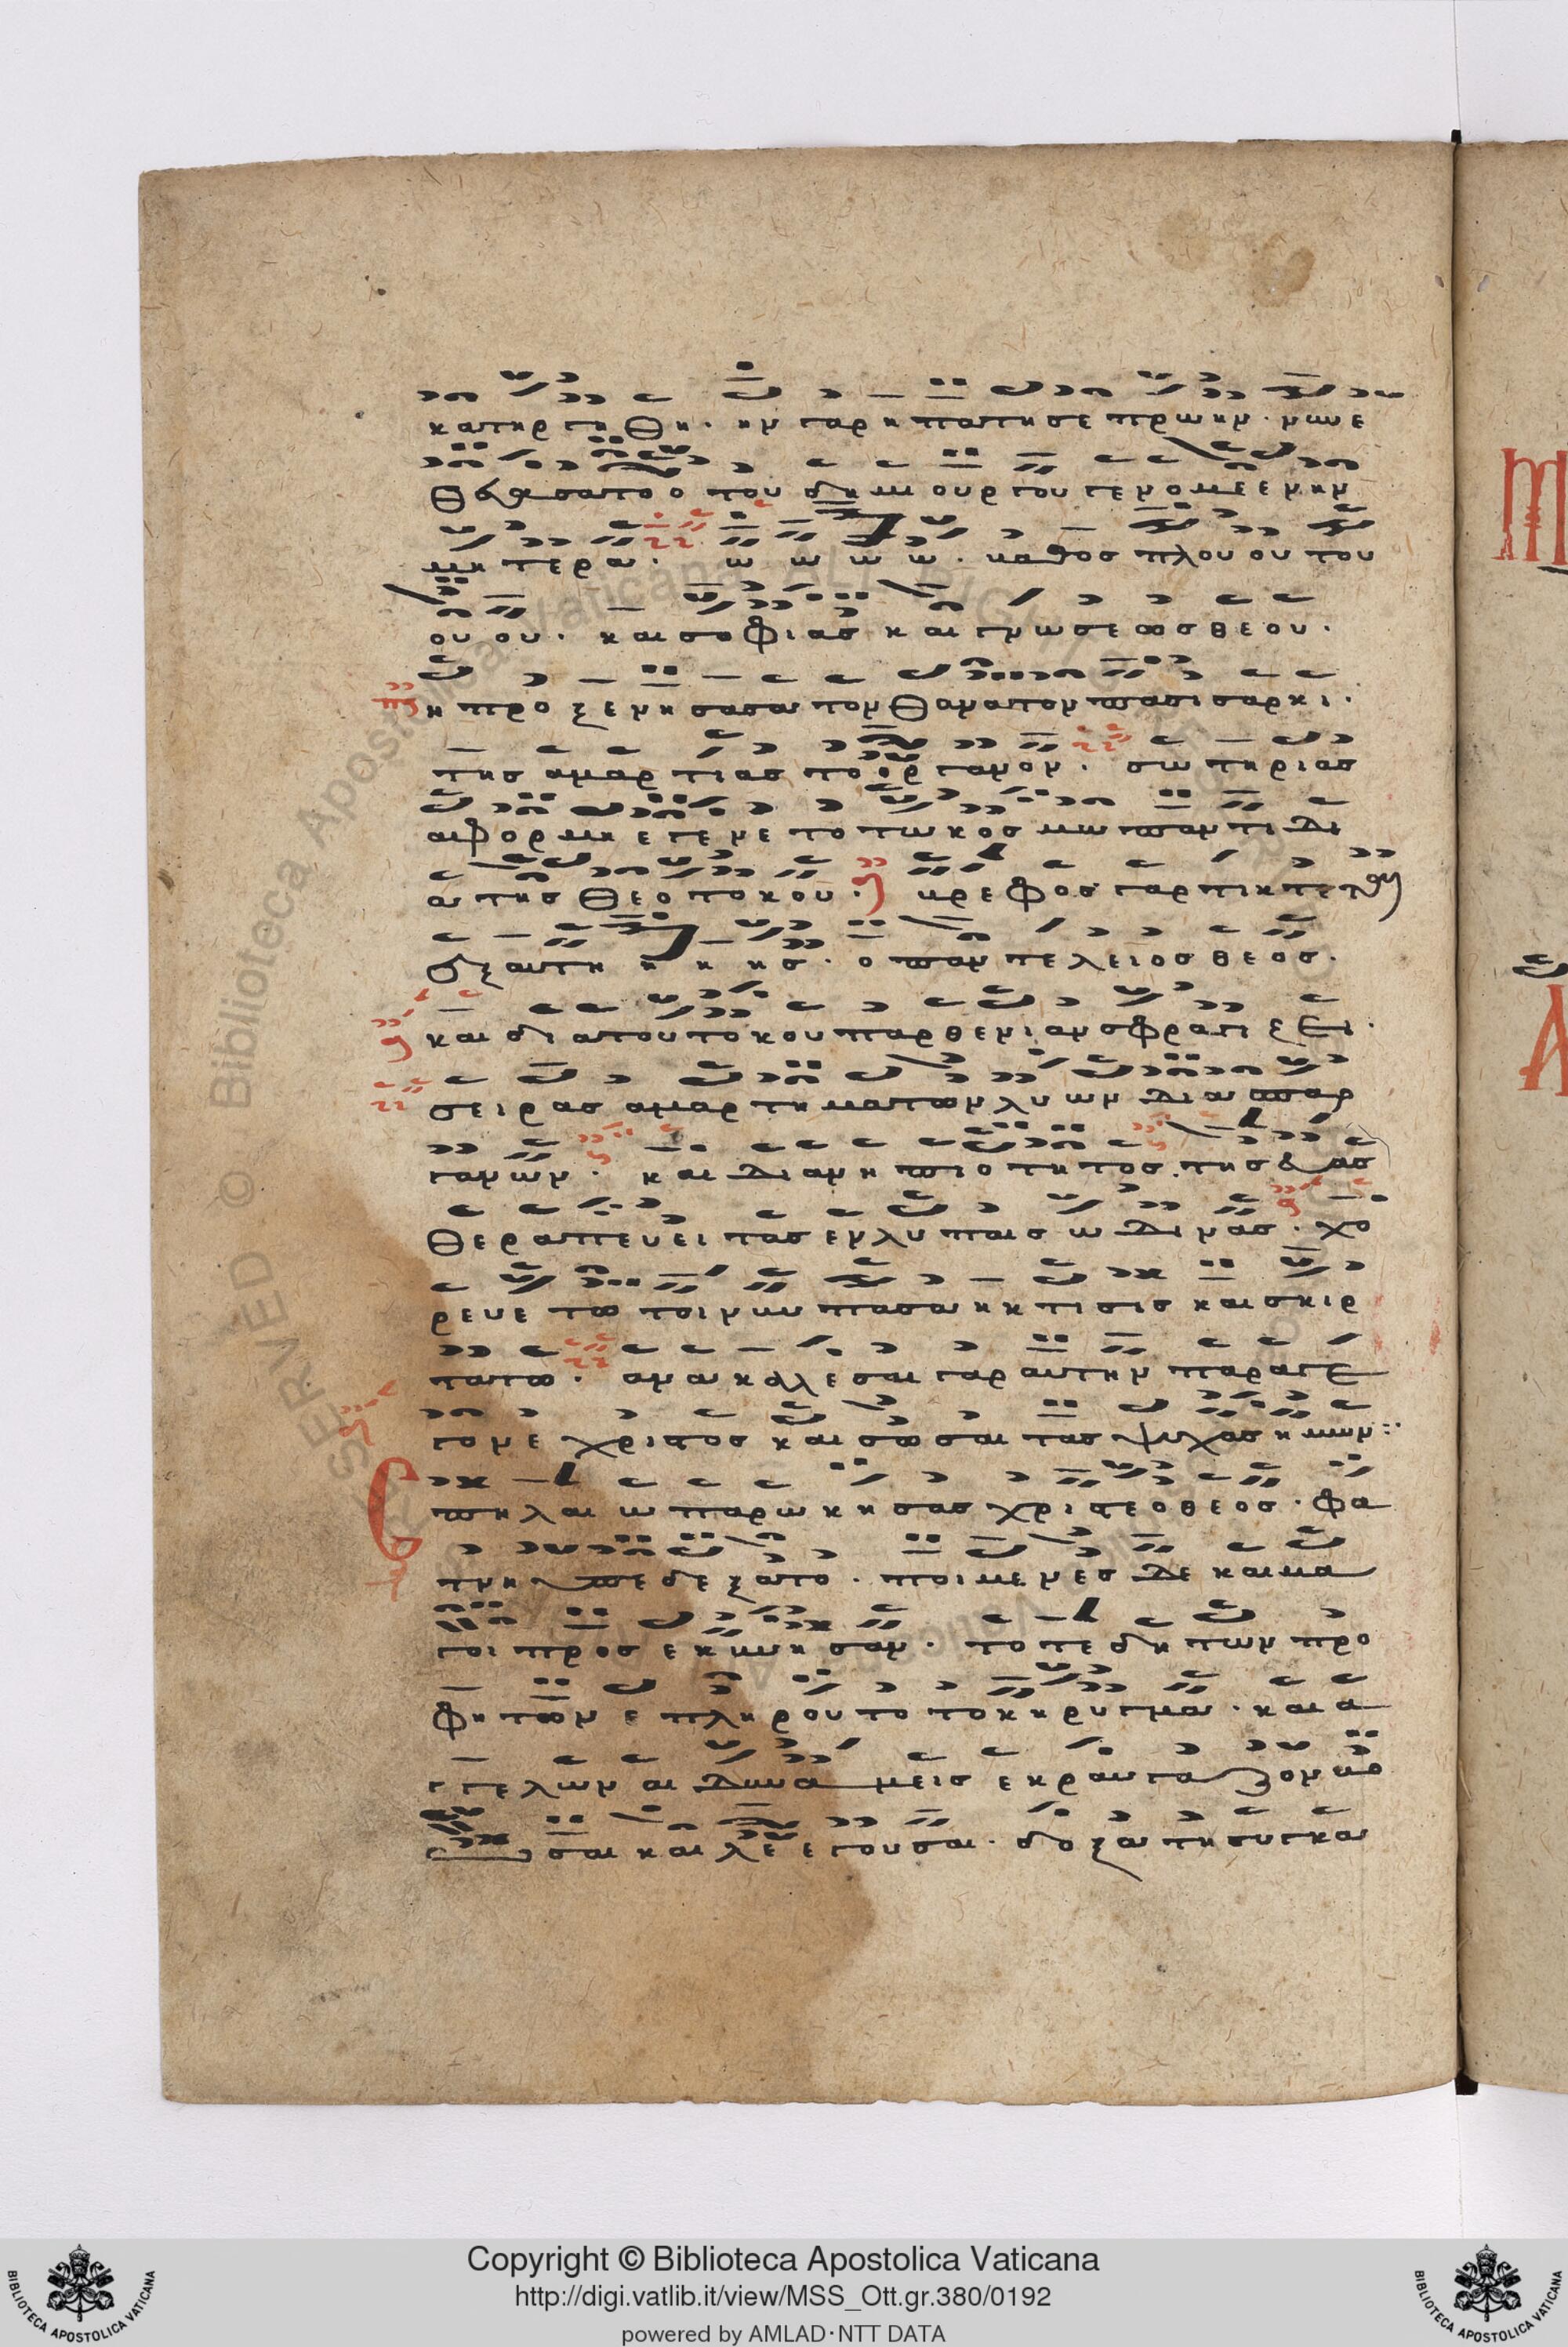 κατηργηθη· ην γαρ ηπατησε πρωην· νυνε
θεασατο ο του δημιουργου γενομεενην
μητερα· ω ω ω ω· βαθος πλουουτου
ουου· και σοφιας και γνωσεως θεου·
η προξενησασα τον θανατον πασι σαρκι·
της αμαρτιας το οργανον· σωτηριας
αφορμη εγενετο τω κοσμω παντι δι
α της θεοτοκου· βρεφος γαρ τικτεται
εξ αυτη η η ης· ο παντελειος θεος·
και δια του τοκου παρθενιαν σφραγιζει·
σειρας αμαρτηματων λυων δια σπαρ
γανων· και δια νηπιοτητος· της ευας
θεραπευει τας εν λυπαις ωδινας· χο
ρευετω τοινυν πασα η κτισις και σκιρ
τατω· ανακαλεσαι γαρ αυτην παραγε
γονε χριστος και σωσαι τας ψυχας ημων:
Σπηλαιω παρωκησας χριστε ο θεος· φα
τνη υπεδεξατο· ποιμενες δε και μα
γοι προσεκυνησαν· τοτε δη των προ
φητων επληρουτο το κηρυγμα· και α
γγελων αι δυναμεις εκραυγαζον βο
ωσαι και λεεγουσαι· δοξα τη συγκα
Copyright © Biblioteca Apostolica Vaticana
http://digi.vatlib.it/view/MSS_Ott.gr.380/0192
powered by AMLAD·NTT DATA
BIBLIOTECA APOSTOLICA VATICANA
BIBLIOTECA APOSTOLICA VATICANA